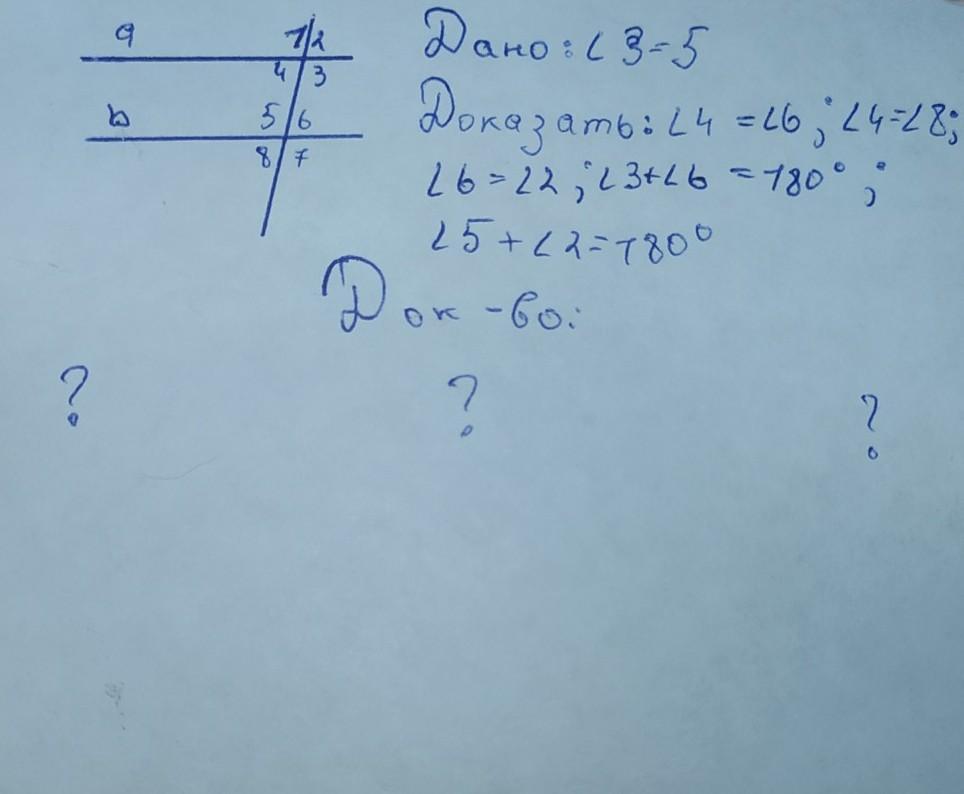 a 1 2
4 3
b 5 6
8 7
Дано: ∠3=5
Доказать: ∠4=∠6; ∠4=∠8;
∠6=∠2; ∠3+∠6=180°;
∠5+∠2=180°
Док-во:
? ? ?